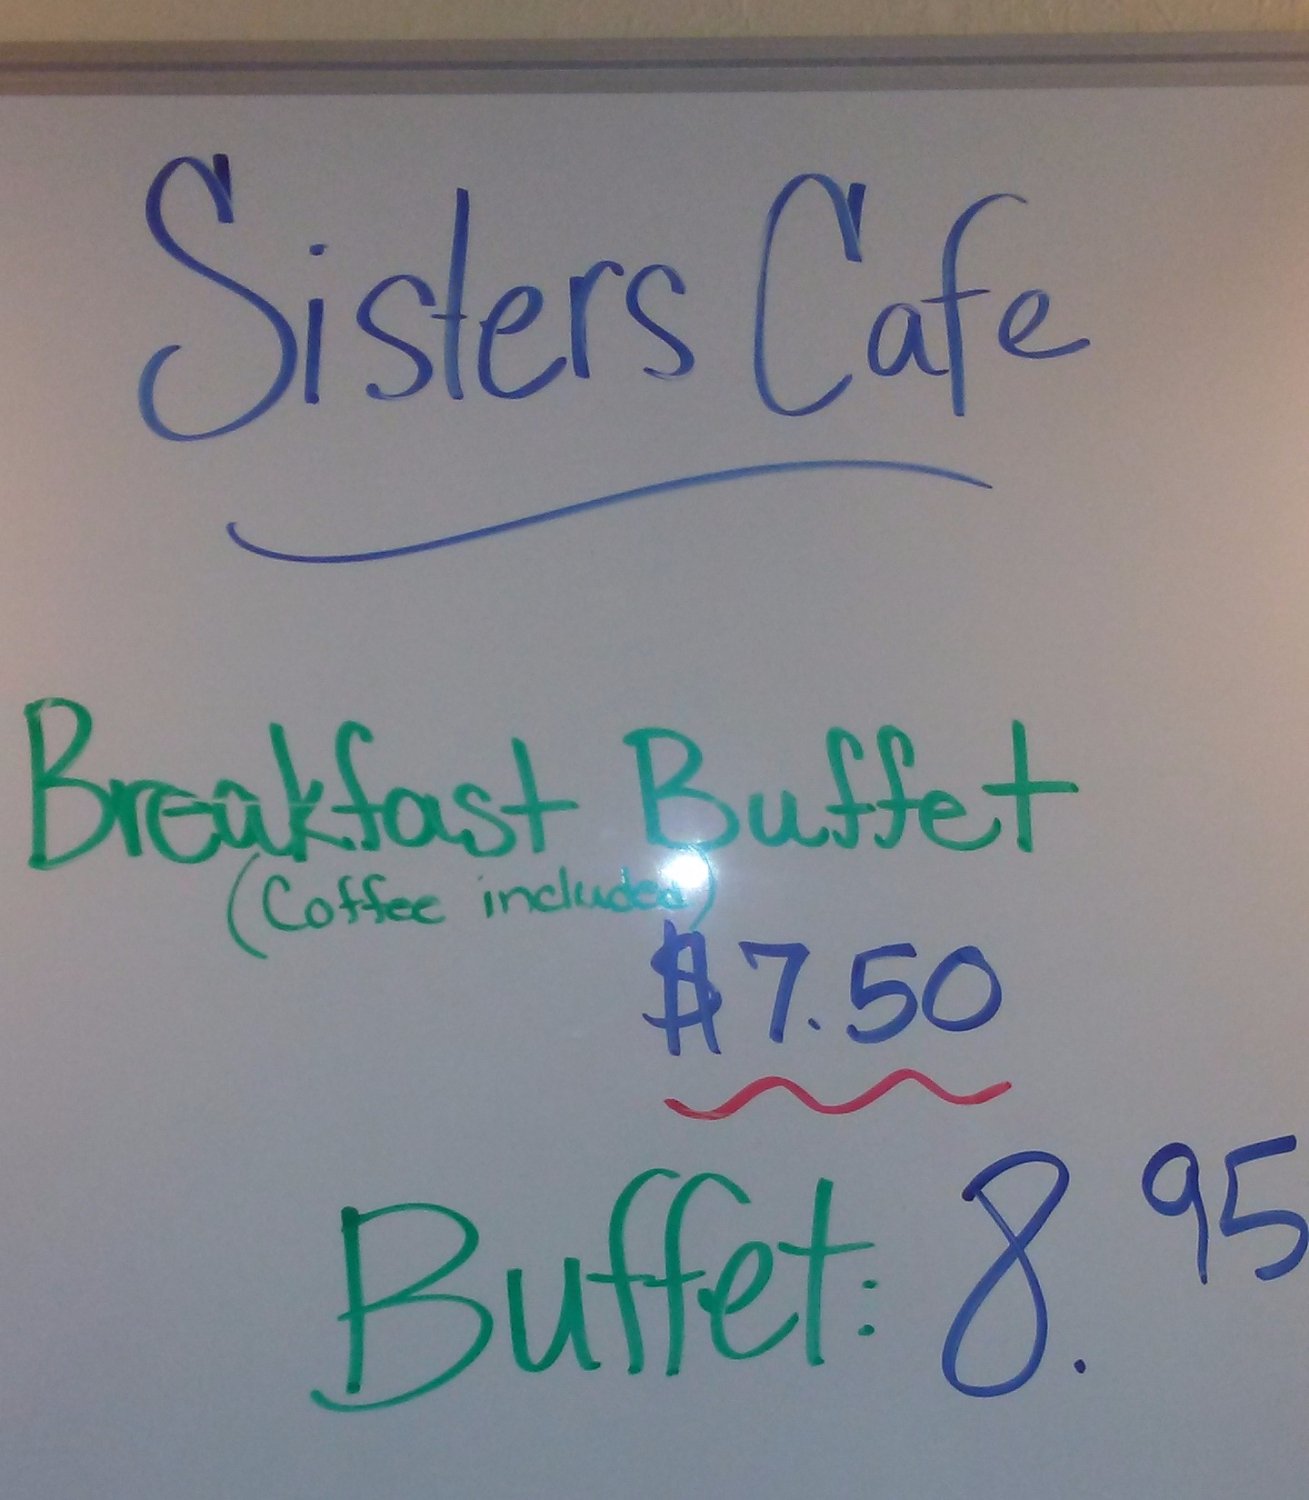 Sisters Cafe
Breakfast Buffet
(Coffee included)
$7.50
Buffet: 8.95